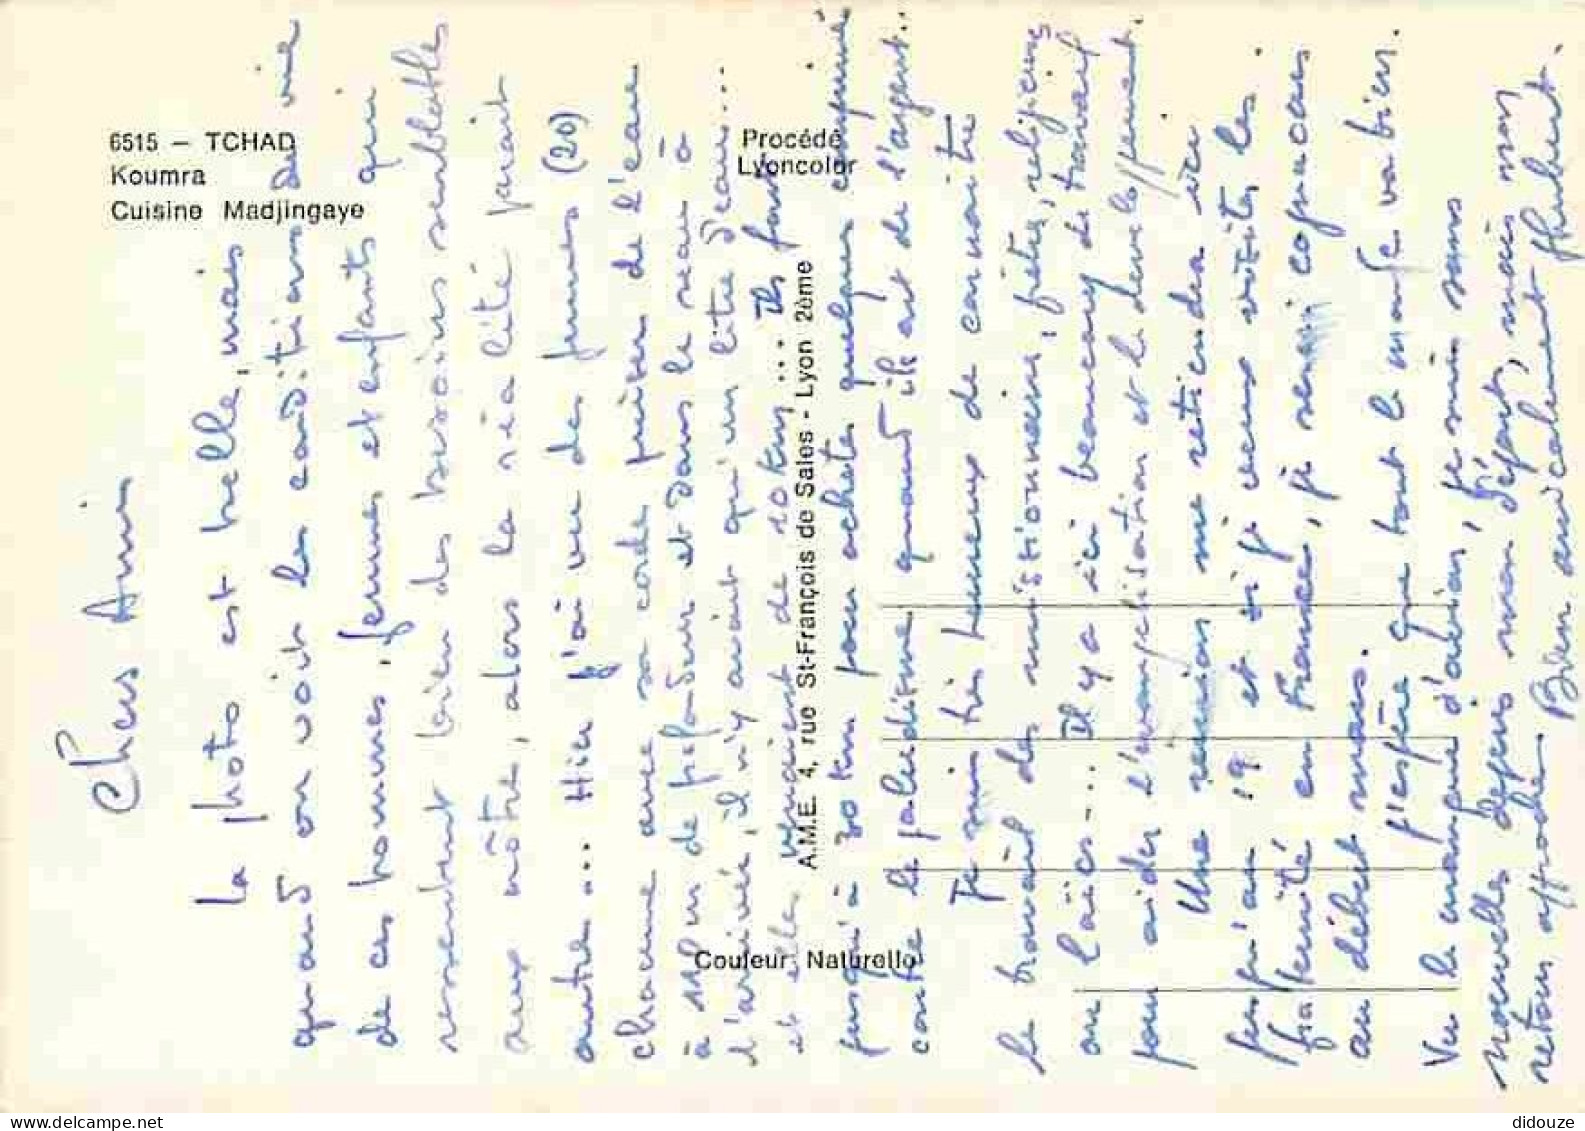 6515 — TCHAD
Koumra
Cuisine Madjingaye
Procédé
Lyoncolor
A.M.E. 4, rue St-François de Sales - Lyon 2ème
Couleur Naturelle
Chers Amis
la photo est belle, mais
quand on voit les conditions de vie
de ces hommes, femmes et enfants qui
ressentent bien des besoins semblables
aux nôtre, alors la réalité parait
autre... Hier j'ai vu des femmes (20)
chacune avec sa corde puiser de l'eau
à 110 m de profondeur et dans le seau à
l'arrivée, il n'y avait qu'un litre d'eau...
et elles venaient de 10 km... Ils font
jusqu'à 30 km pour acheter quelques comprimé
contre le paludisme quand ils ont de l'argent..
Je suis très heureux de connaitre
le travail des missionnaires, frères, religieuses
ou laïcs... Il y a ici beaucoup de travail
pour aider l'évangelisation et le développement.
Une reunion me retiendra ici
jusqu'au 19 et si je veux visiter les
fraternité en France, je serai cognacais
au début mars.
J'espère que tout le monde va bien.
Vu le manque d'avion, je suis sans
nouvelles depuis mon départ, mais mon
retour approche Bien amicalement Hubert.
didouze